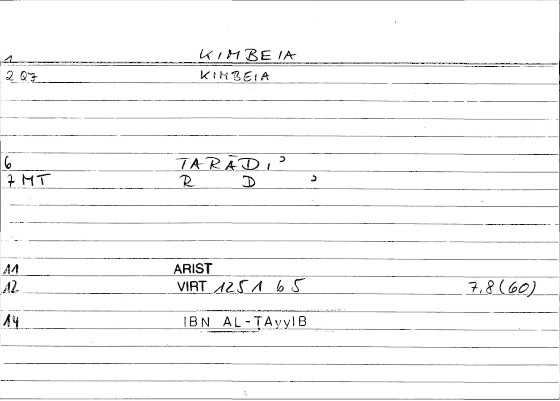 1 KIMBEIA
2 Q7 KIMBEIA
6 TARĀḌIʾ
7 MT R Ḍ ʾ
11 ARIST
12 VIRT 1251 b 5 7,8(60)
14 IBN AL-ṬAyyIB